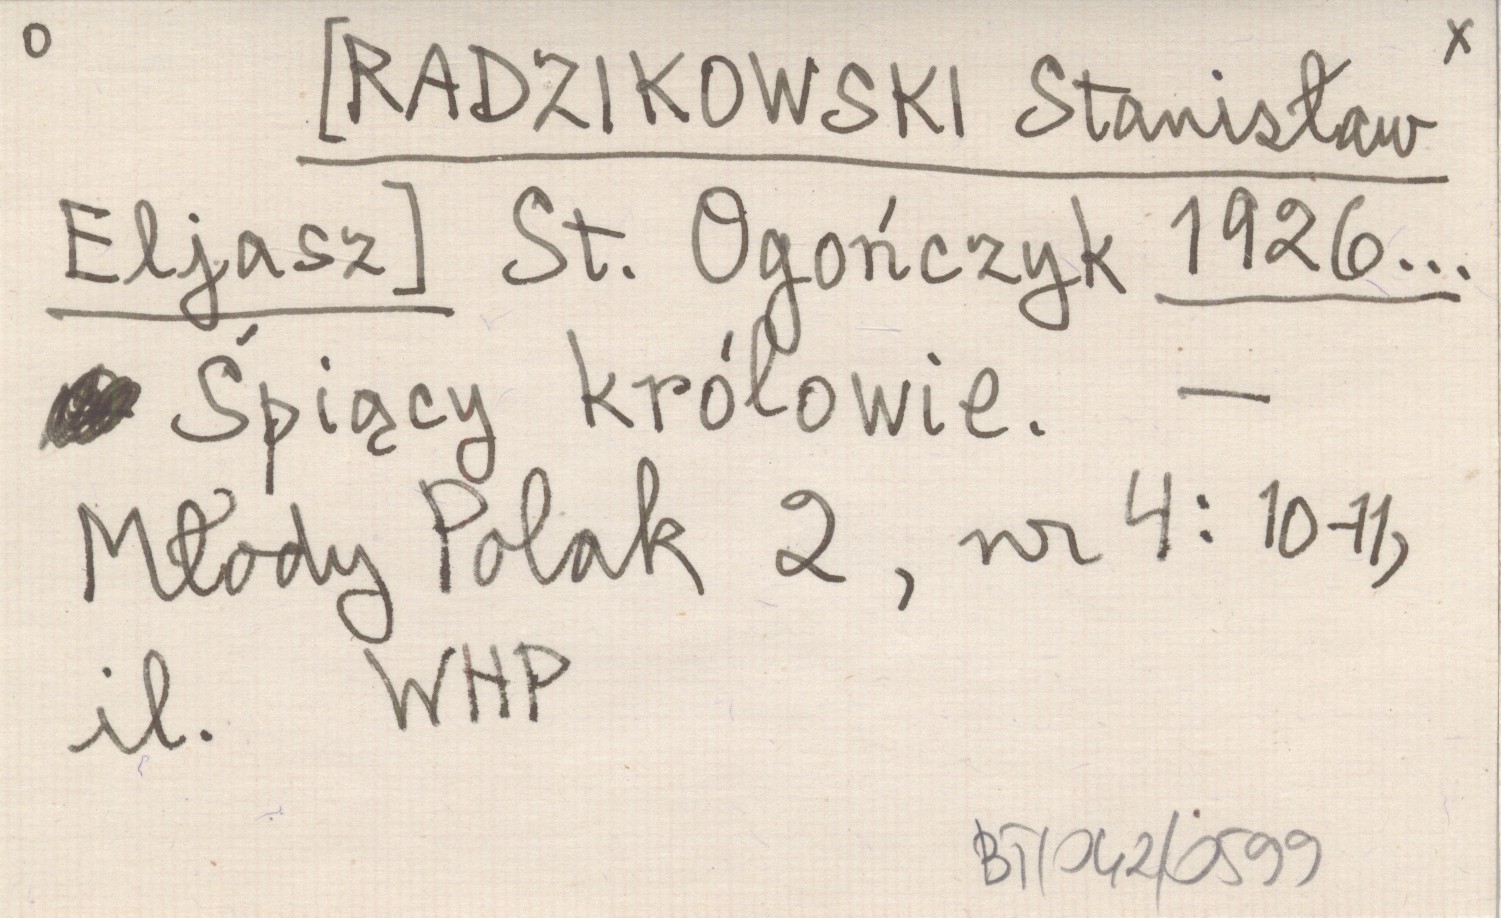 o [RADZIKOWSKI Stanisław x
Eljasz] St. Ogończyk 1926...
Śpiący królowie. —
Młody Polak 2, nr 4: 10-11,
il. WHP
BT/042/0599